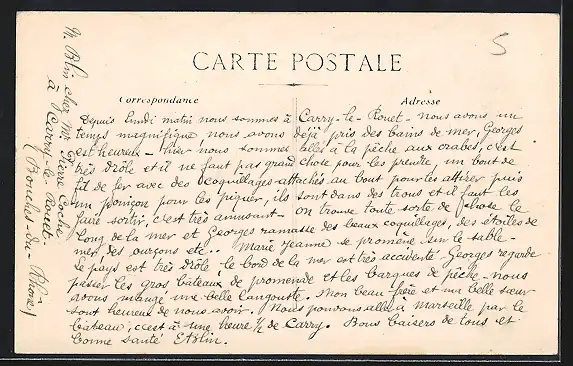 5
CARTE POSTALE
Correspondance
Adresse
Depuis lundi matin nous sommes à Carry-le-Rouet - nous avons un
temps magnifique, nous avons déjà pris des bains de mer, Georges
est heureux - hier nous sommes allés à la pêche aux crabes, c'est
très drôle et il ne faut pas grand chose pour les prendre, un bout de
fil de fer avec des coquillages attachés au bout pour les attirer puis
un poinçon pour les piquer, ils sont dans des trous et il faut les
faire sortir, c'est très amusant - on trouve toute sorte de chose le
long de la mer et Georges ramasse des beaux coquillages, des étoiles de
mer des ourçons etc.. Marie Jeanne se promène sur le sable -
le pays est très drôle, le bord de la mer est très accidenté - Georges regarde
passer les gros bâteaux de promenade et les barques de pêche - nous
avons mangé une belle langoutte. Mon beau-frère et ma belle sœur
sont heureux de nous avoir. Nous pouvons aller à Marseille par le
bâteau, c'est à une heure ½ de Carry. Bons baisers de tous et
bonne santé EtBlin.
M. Blin chez Mr Pierre
à Carry-le-Rouet
(Bouches-du-Rhône)